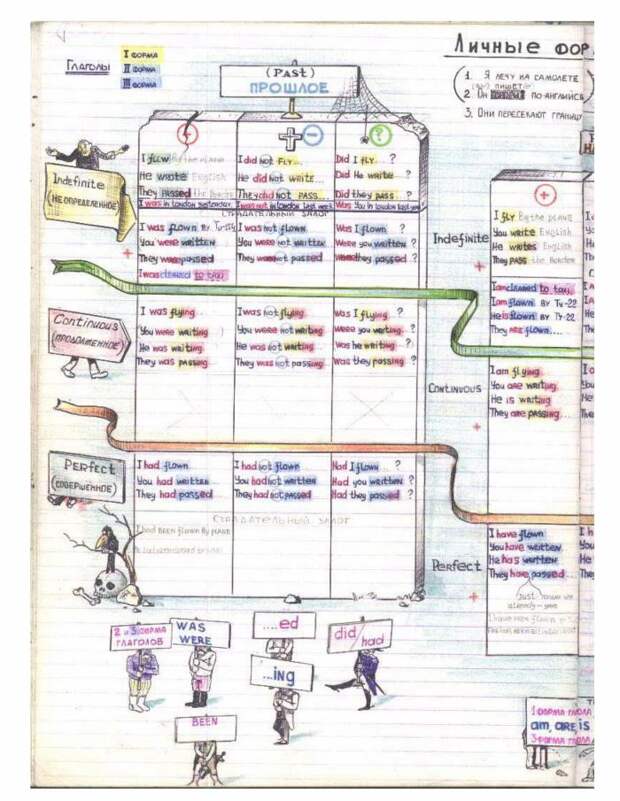 Глаголы
I форма
II форма
III форма
(Past)
ПРОШЛОЕ
Личные фор
1. Я лечу на самолете
2. Он по-английск
3. Они пересекают границу
Indefinite
(неопределенное)
+
−
?
I flew By the plane
He wrote English
They passed the Border
I was in London yesterday.
I did not fly...
He did not write...
They did not pass...
I was not in London last week.
Did I fly... ?
Did He write... ?
Did they pass ?
Was You in London last year
Страдательный залог
I was flown By
You were written
They were passed
I was cleaned to day.
I was not flown
You were not written
They were not passed
Was I flown ?
Were you written ?
they passed ?
Continuous
(продолженное)
I was flying
You were writing
He was writing
They was passing
I was not flying...
You were not writing
He was not writing
They was not passing
Was I flying... ?
Were you writing... ?
Was he writing... ?
Was they passing... ?
Perfect
(совершенное)
I had flown
You had written
They had passed
I had not flown
You had not written
They had not passed
Had I flown... ?
Had you written ?
Had they passed ?
Страдательный залог
I had been flown By plane
Indefinite
+
I fly By the plane
You write English
He writes English
They pass the Border
I am cleaned to day.
I am flown By Ту-22
He is flown By Ту-22
They are flown...
Continuous
I am flying
You are writing
He is writing
They are passing...
Perfect
I have flown
You have written
He has written
They have passed...
Just
already
I have been flown
2 и 3 форма
глаголов
WAS
WERE
....ed
...ing
did/had
BEEN
1 форма глагола
am, are, is
3 форма глагола